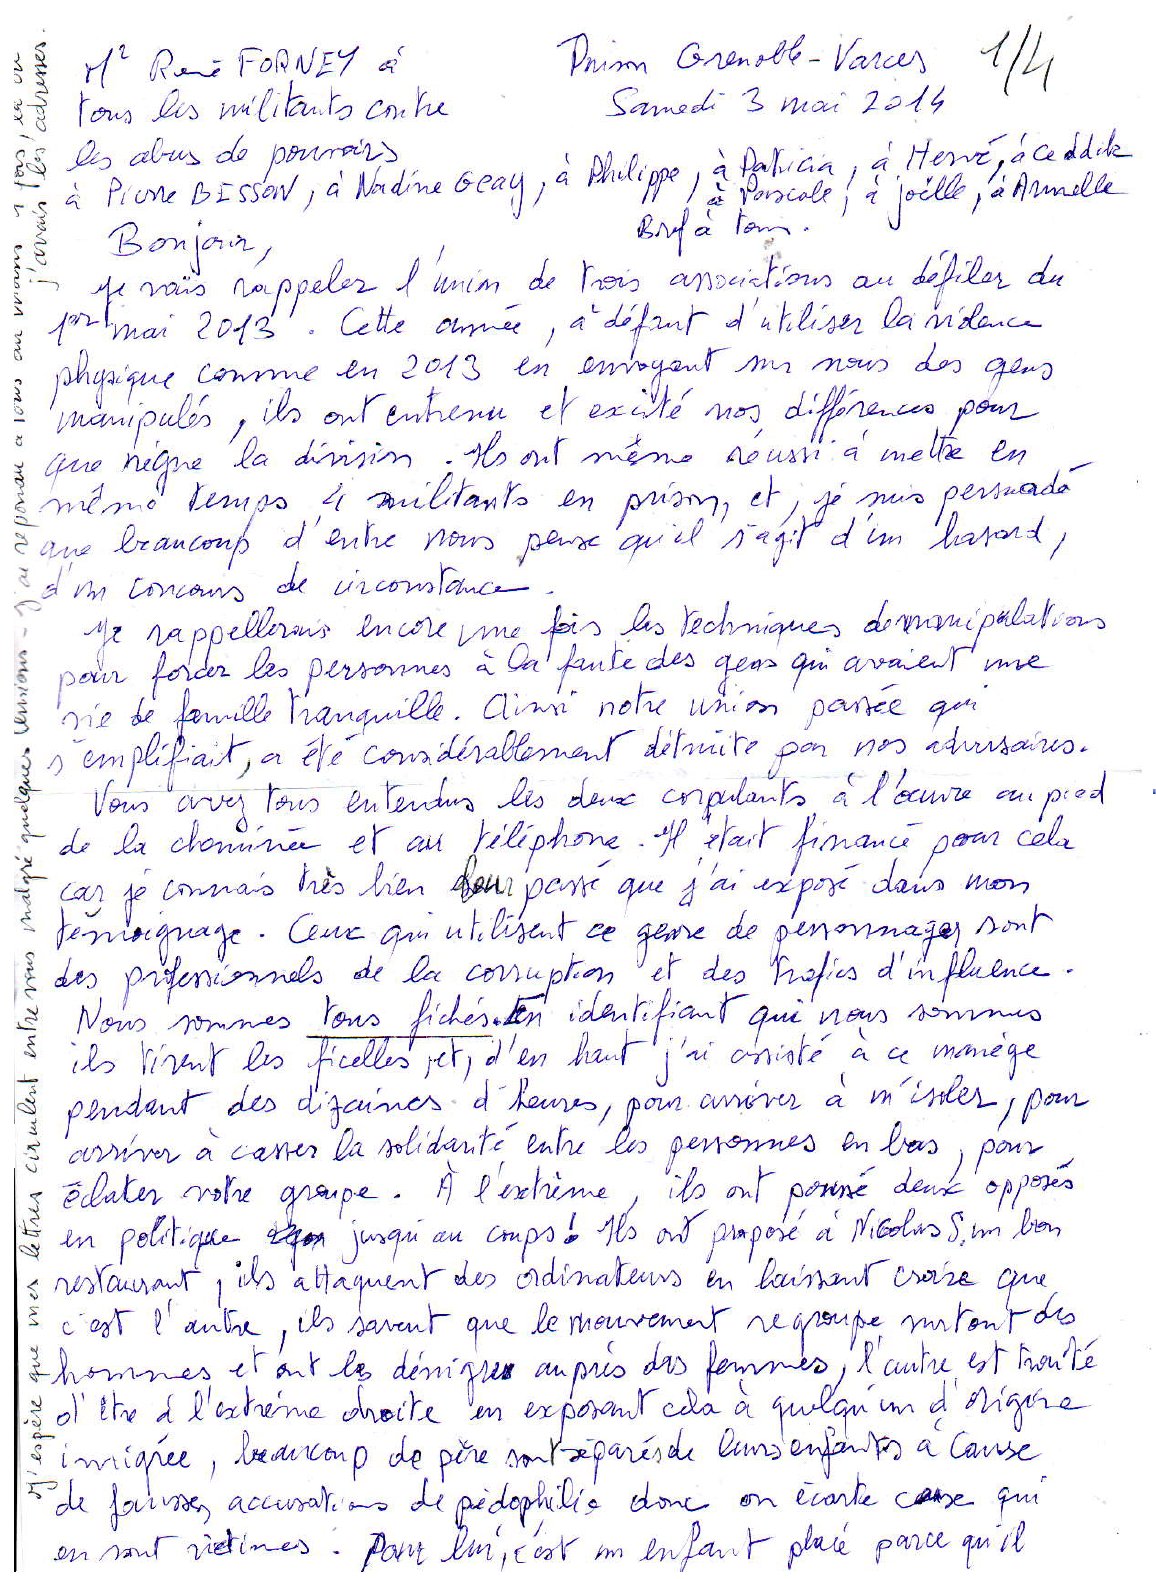 Mr René FORNEY à
tous les militants contre
les abus de pouvoirs
Prison Grenoble-Varces
Samedi 3 mai 2014
1/4
à Pierre BESSON, à Nadine GEAY, à Philippe, à Patricia, à Hervé, à Ceddik
à Pascale, à joëlle, à Armelle
Bref à tous.
Bonjour,
Je vais rappeler l'union de trois associations au défiler du
1er mai 2013. Cette année, à défaut d'utiliser la violence
physique comme en 2013 en envoyant sur nous des gens
manipulés, ils ont entrenu et excité nos différences pour
que règne la division. Ils ont même réussi à mettre en
même temps 4 militants en prison, et, je suis persuadé
que beaucoup d'entre nous pense qu'il s'agit d'un hasard,
d'un concours de circonstance.
Je rappellerais encore une fois les techniques de manipulations
pour forcer les personnes à la faute des gens qui avaient une
vie de famille tranquille. Ainsi notre union passée qui
s'emplifiait, a été considérablement détruite par nos adversaires.
Vous avez tous entendus les deux corpulants à l'œuvre au pied
de la cheminée et au téléphone. Il était financé pour cela
car je connais très bien leur passé que j'ai exposé dans mon
témoignage. Ceux qui utilisent ce genre de personnages sont
des professionnels de la corruption et des trafics d'influence.
Nous sommes tous fichés. En identifiant qui nous sommes
ils tirent les ficelles, et, d'en haut j'ai assisté à ce manège
pendant des dizaines d'heures, pour arriver à m'isoler, pour
arriver à casser la solidarité entre les personnes en bas, pour
éclater notre groupe. À l'extrême, ils ont poussé deux opposés
en politique jusqu'au coups! Ils ont proposé à Nicolas S. un bon
restaurant, ils attaquent des ordinateurs en laissant croire que
c'est l'autre, ils savent que le mouvement regroupe surtout des
hommes et ont les dénigré auprès des femmes, l'autre est traité
d'être d l'extrême droite en exposant cela à quelqu'un d'origine
imigrée, beaucoup de père sont séparés de leurs enfants à cause
de fausses accusations de pédophilie donc on écarte ceux qui
en sont victimes. Pour lui, c'est un enfant placé parce qu'il
J'espère que mes lettres circulent entre vous malgré quelques tensions - J'ai répondu à tous au moins 1 fois,
j'avais les adresses.